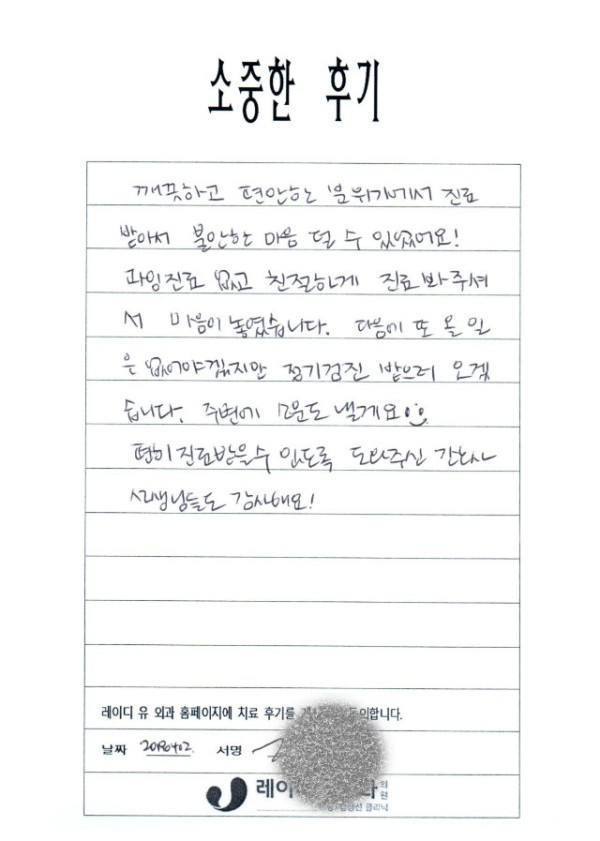 소중한 후기
깨끗하고 편안한 분위기에서 진료
받아서 불안한 마음 덜 수 있었어요!
과잉진료 없고 친절하게 진료봐주셔
서 마음이 놓였습니다. 다음에 또 올 일
은 없어야겠지만 정기검진 받으러 오겠
습니다. 주변에 소문도 낼게요
편히진료받을수 있도록 도와주신 간호사
선생님들도 감사해요!
레이디 유 외과 홈페이지에 치료 후기를 동의합니다.
날짜 20190402. 서명
레이디 의원
클리닉